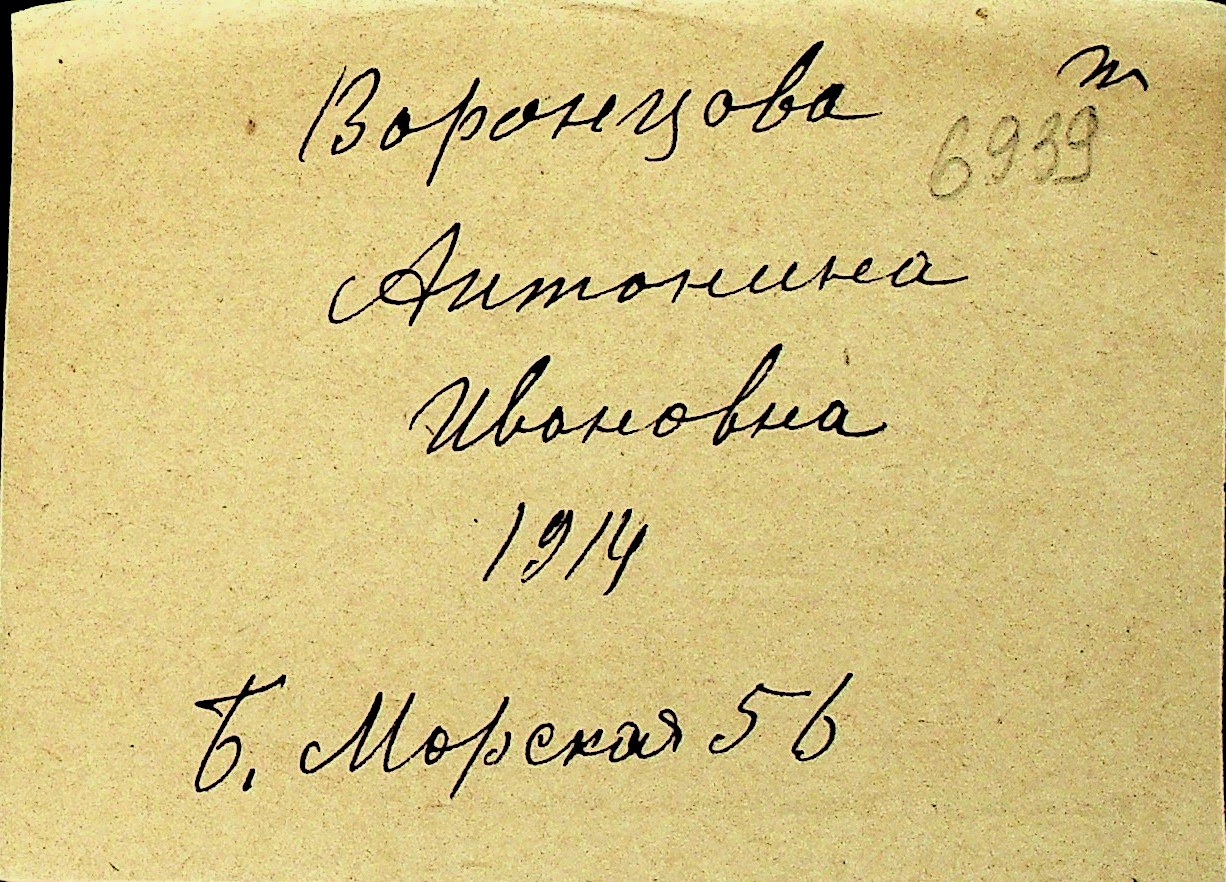 Воронцова т
6939
Антонина
Ивановна
1914
Б. Морская 56